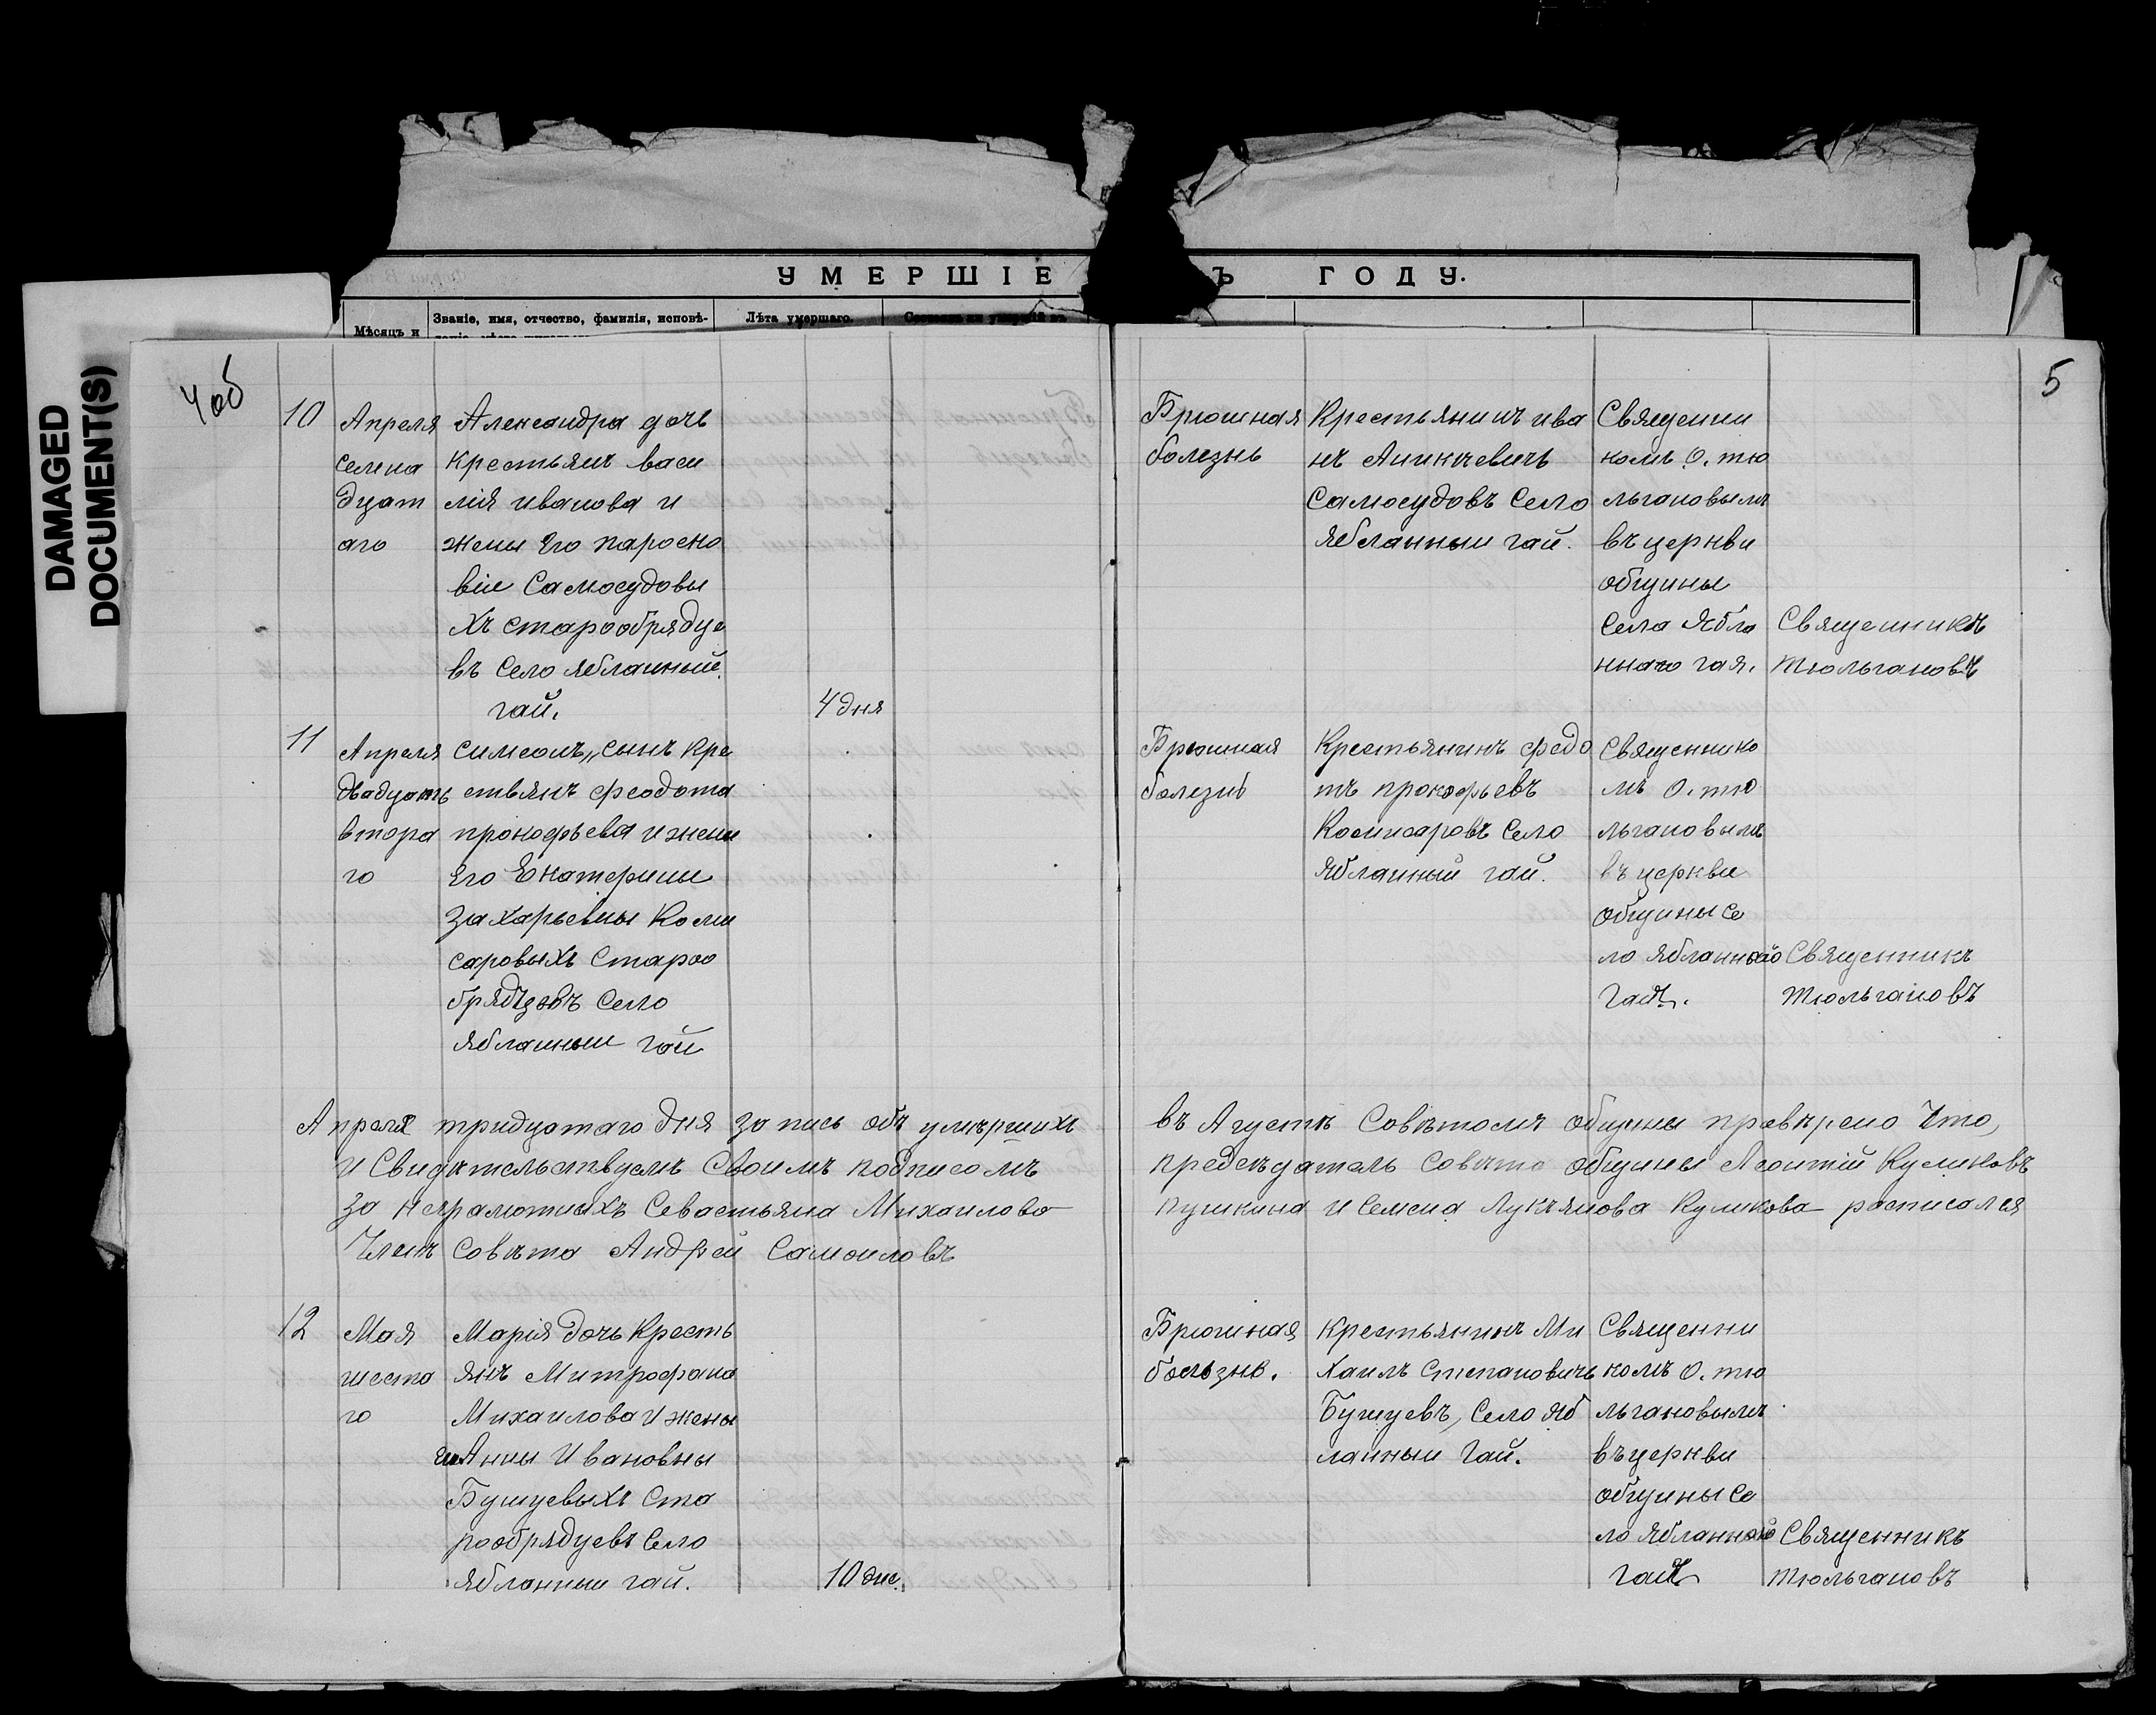 DAMAGED
DOCUMENT(S)
УМЕРШІЕ Ъ ГОДУ.
Мѣсяцъ и
Званіе, имя, отчество, фамилія, исповѣ-
Лѣта умершаго.
4об
5
10
Апреля
семна
дцат
аго
Александра дочь
крестьянъ васи
лія иванова и
жены его параске
віи Самосудовы
хъ старообрядце
въ село яблanный
гай.
4 дня
Брюшная
болезнь
Крестьянинъ ива
нъ Аникиевичъ
Самосудовъ Село
яблanныи гай.
Священни
комъ О. тю
льгановымъ
въ церкви
общины
села Ябло
ннаго гая.
Священникъ
тюльгановъ
11
Апреля
двадцать
втора
го
симеонъ,, сынъ кре
стьянъ феодота
прокофьева и жены
его Екатерины
захарьевны Коми
саровыхъ Староо
брядцовъ Село
яблanныи гай
Брюшная
болезнь
Крестьянинъ федо
тъ прокофьевъ
Комисаровъ Село
яблanный гай.
Священнико
мъ О. тю
льгановымъ
въ церкви
общины се
ло яблanной
Гая.
Священникъ
тюльгановъ
Апреля тридцатаго дня запись объ умершихъ въ Агустѣ Совѣтомъ общины провѣрено Что,
и Свидѣтельствуемъ Своимъ подписомъ председатель совѣта общины Леонтій Куликовъ
за неграмотныхъ Севастьяна Михаилова пушкина и Семена Лукъянова Куликова росписался
Членъ Совѣта Андрей Самоиловъ
12
Мая
шесто
го
Марія дочь Кресть
янъ Митрофана
Михаилова и жены
его Анны Ивановны
Бушуевыхъ Ста
рообрядцевъ Село
яблanныи гай.
10 дне.
Брюшная
болѣзнь.
крестьянинъ Ми
хаилъ Степановичъ
Бушуевъ, Село Яб
лanныи Гай.
Священни
комъ О. тю
льгановымъ
въ церкви
общины се
ло яблanной
Гая
Священникъ
тюльгановъ